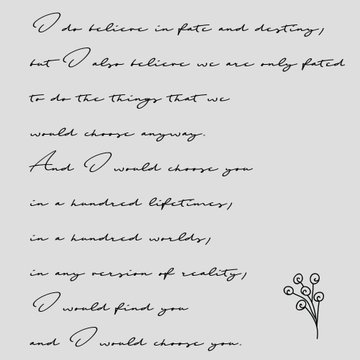 I do believe in fate and destiny,
but I also believe we are only fated
to do the things that we
would choose anyway.
And I would choose you
in a hundred lifetimes,
in a hundred worlds,
in any version of reality,
I would find you
and I would choose you.